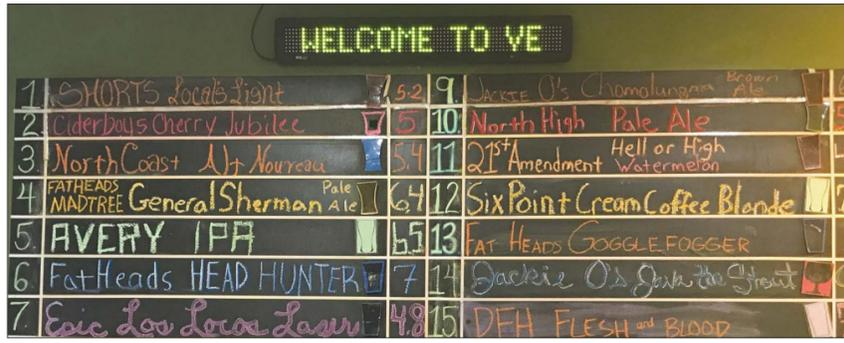 WELCOME TO VE
1. SHORTS Local's Light 5.2
2. Ciderboys Cherry Jubilee 5
3. North Coast Nouveau 5.4
4 FATHEADS MADTREE General Sherman Pale Ale 6.4
5. AVERY IPA 6.5
6. FatHeads HEAD HUNTER 7
7. Epic Los Locos Lager 4.8
9. JACKIE O's Chomolungma Brown Ale
10. North High Pale Ale
11 21st Amendment Hell or High Watermelon
12 Six Point Cream Coffee Blonde
13 FAT HEADS GOGGLEFOGGER
14 Jackie O's Java the Stout
15 DFH FLESH and BLOOD